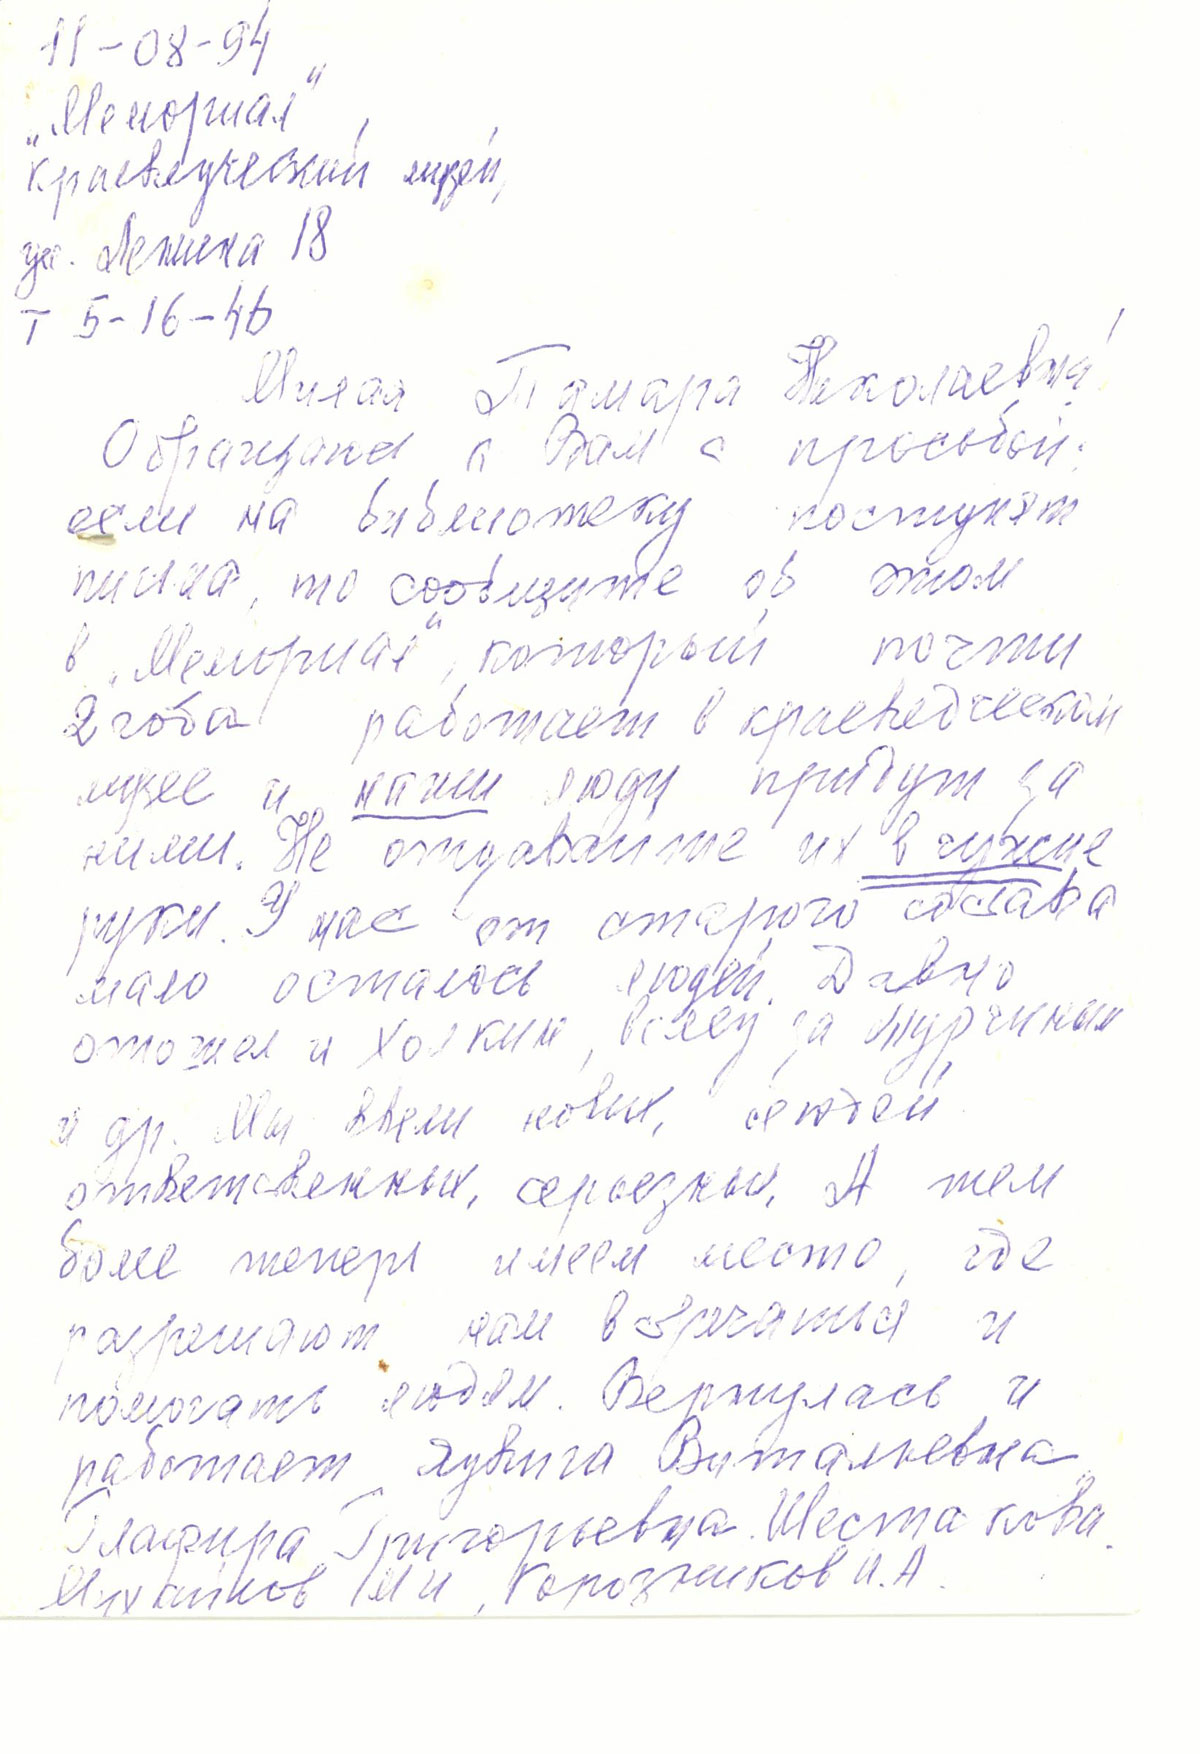 11-08-94
„Мемориал“
краеведческий музей,
ул. Ленина 18
т 5-16-46
Милая Тамара Николаевна!
Обращаюсь к Вам с просьбой:
если на библиотеку поступят
письма, то сообщите об этом
в „Мемориал“, который почти
2 года работает в краеведческом
музее и наши люди придут за
ними. Не отдавайте их в чужие
руки. У нас от старого состава
мало осталось людей. Давно
отошел и Холкин, вслед за Турчиным
и др. Мы ввели новых, людей
ответственных, серьезных. А тем
более теперь имеем место, где
разрешают нам встречаться и
помогать людям. Вернулась и
работает Ядвига Витальевна
Глафира Григорьевна Шестакова.
МИ, Корозников И.А.